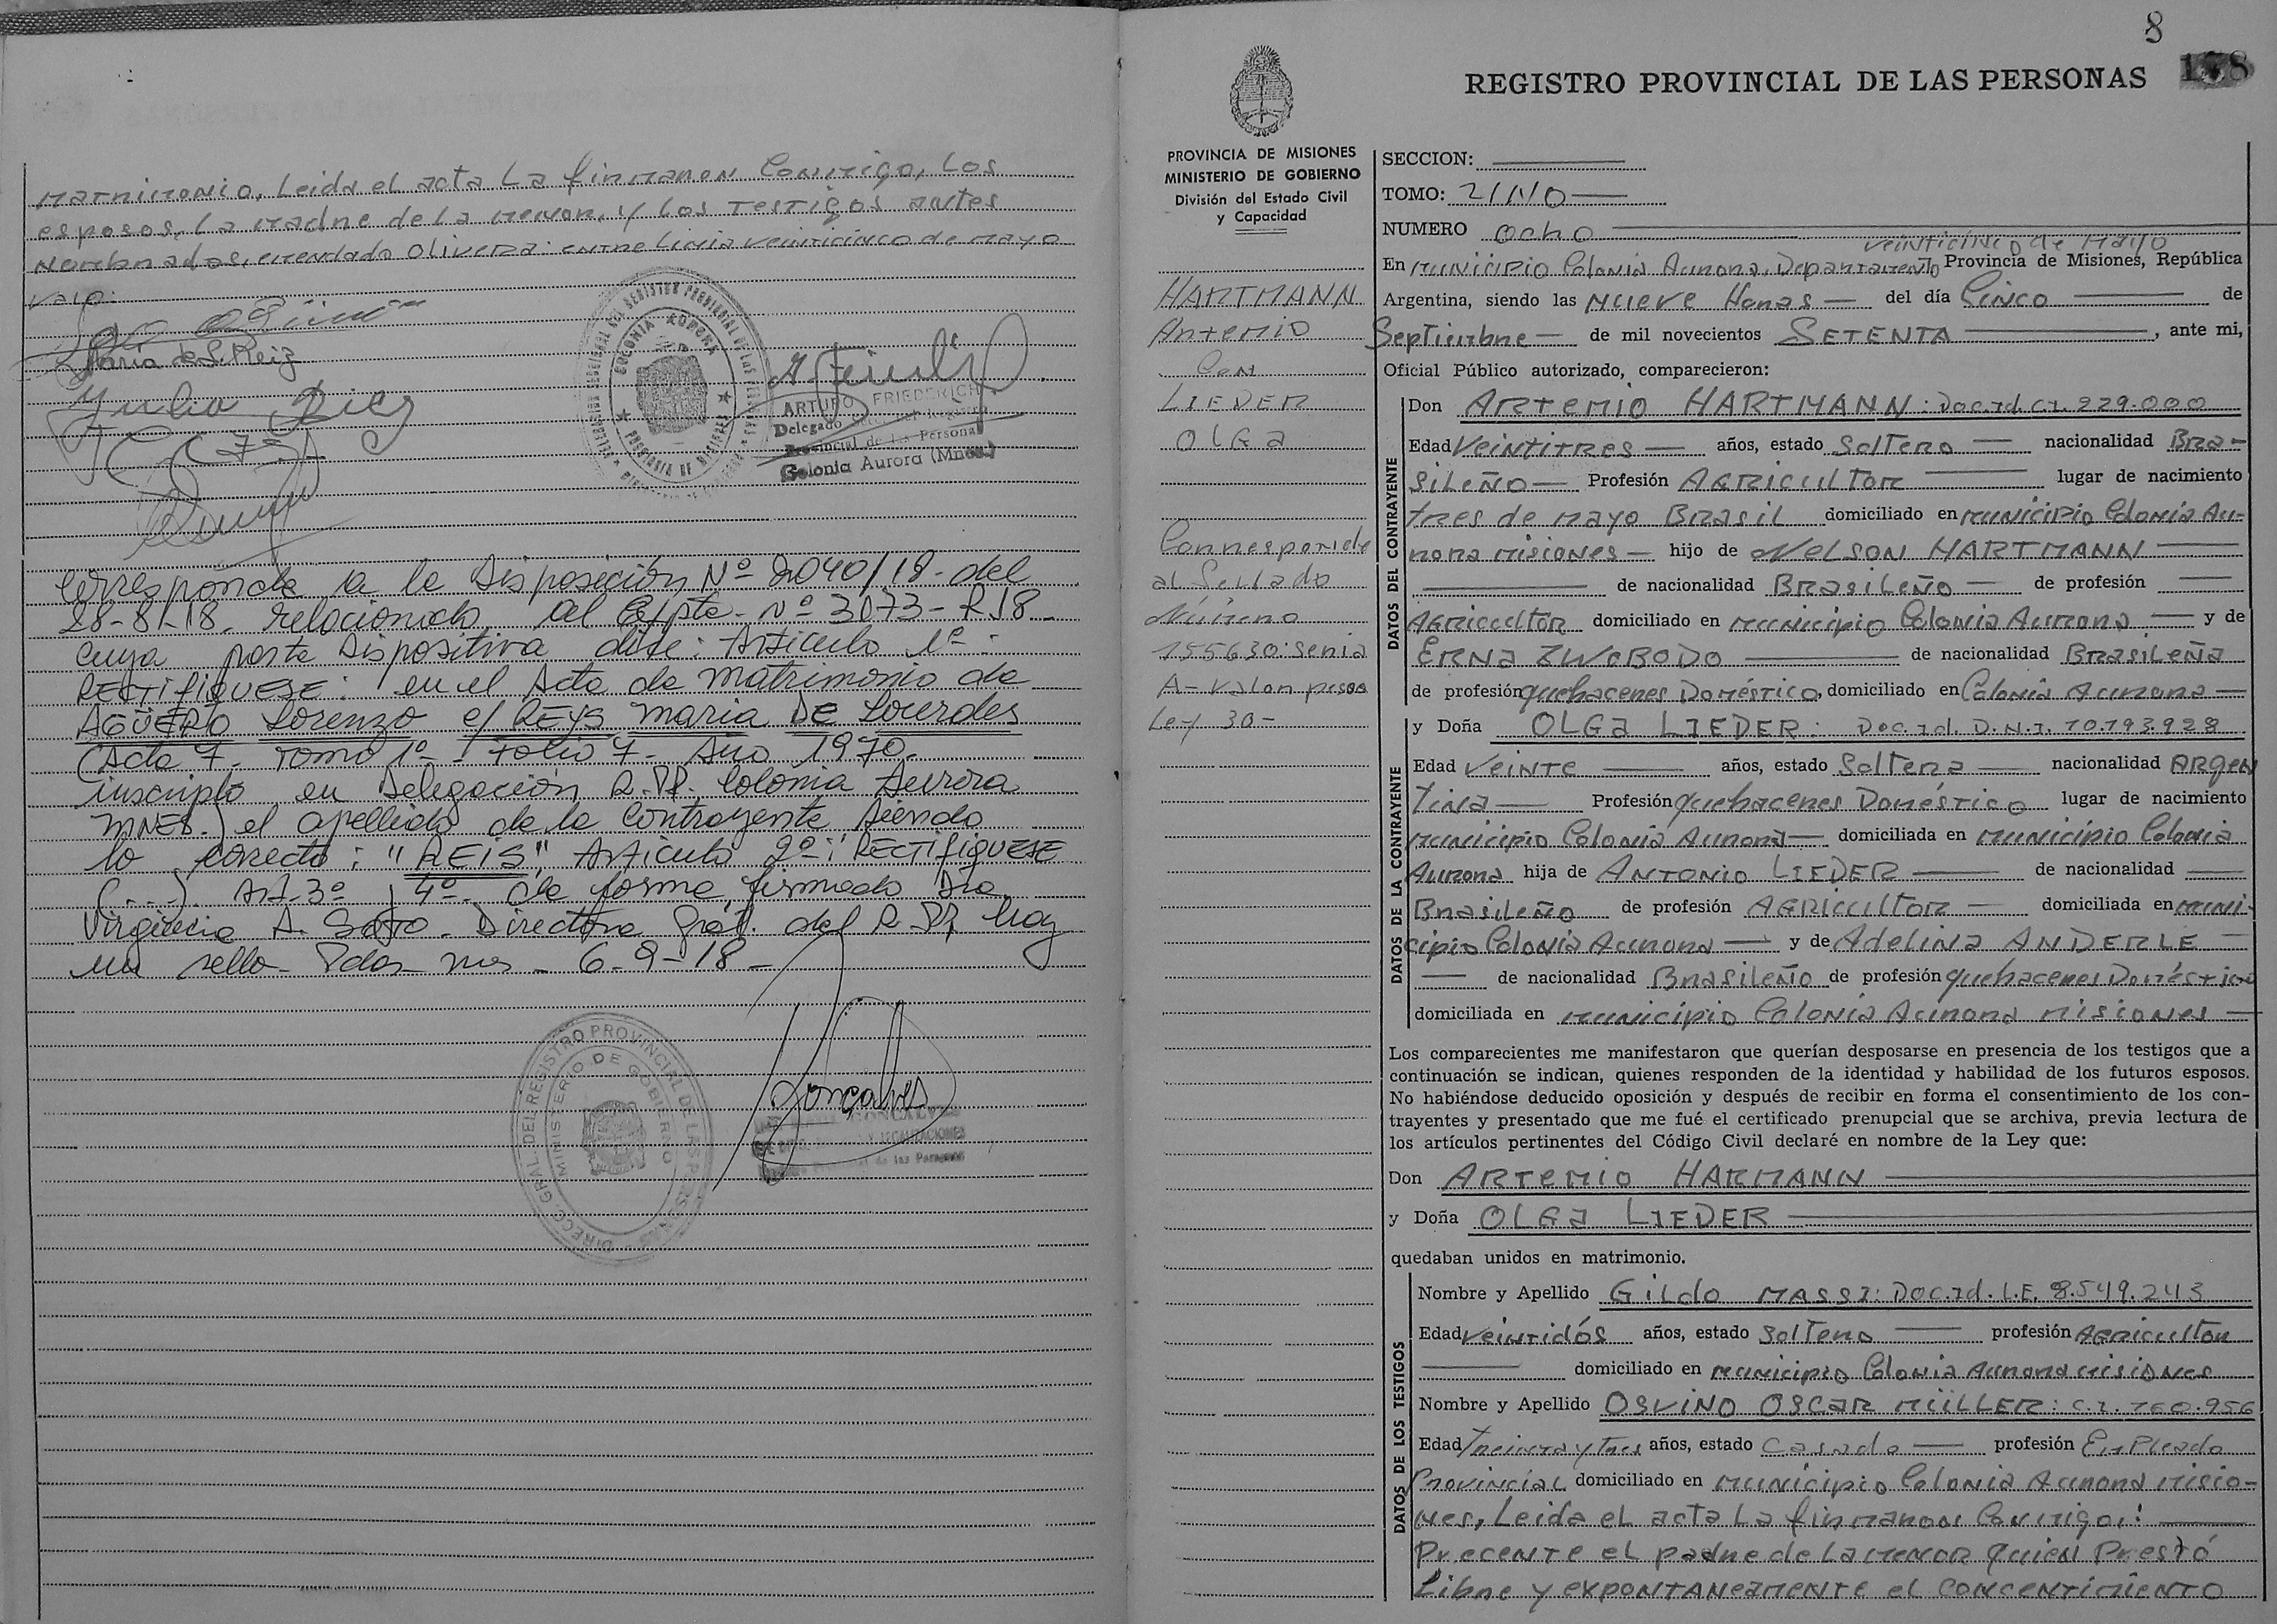 matrimonio, Leida el acta La firmaron Conmigo, Los
esposos, La madre de La menor, y Los Testigos antes
Nombrados, enmendado Olivera: entre linia veinticinco de mayo
vale:
Maria de L. Reiz
Julio
COLONIA AURORA
PROVINCIA DE MISIONES
ARTURO FRIEDERICH
Delegado
Provincial de las Personas
Colonia Aurora (Mnes.)
Corresponde a la Disposición Nº 2040/18- del
28-8-18. relacionado al Expte- Nº 3073-R-18-
cuya parte Dispositiva dice: Artículo 1º-:
RECTIFIQUESE: en el Acta de matrimonio de
AGÜERO Lorenzo c/ REYS maria DE Lourdes
(Acta 7- Tomo 1º- Folio 7- Año 1970.
inscripto en Delegación R.PP. Colonia Aurora
MNES.) el apellido de la contrayente siendo
lo correcto: "REIS" Artículo 2º: RECTIFIQUESE
(...). Art-3º y 4º- de forma, firmado Dra
Virginia A. Soto- Directora Gral. del R.PP. hay
un sello- Pdas- Mnes- 6-9-18-
DIRECC. GRAL. DEL REGISTRO PROVINCIAL DE LAS PERSONAS
MINISTERIO DE GOBIERNO
Goncalves
GONCALVES
Y LEGALIZACIONES
de las Personas
8
REGISTRO PROVINCIAL DE LAS PERSONAS
PROVINCIA DE MISIONES
MINISTERIO DE GOBIERNO
División del Estado Civil
y Capacidad
HARTMANN
Artemio
Con
LIEDER
OLGA
Corresponde
al Sellado
Número
155630: seria
A- valor pesos
Ley 30-
SECCION:
TOMO: 2/NO
NUMERO ocho
veinticinco de Mayo
En municipio Colonia Aurora, Departamento Provincia de Misiones, República
Argentina, siendo las NUEVE Horas del día Cinco de
Septiembre de mil novecientos SETENTA, ante mi,
Oficial Público autorizado, comparecieron:
DATOS DEL CONTRAYENTE
Don ARTEMIO HARTMANN: Doc. Id. C.I. 229.000
Edad VEINTITRES años, estado Soltero nacionalidad BRA-
SILEÑO Profesión AGRICULTOR lugar de nacimiento
tres de mayo Brasil domiciliado en municipio Colonia Au-
rora misiones hijo de NELSON HARTMANN
de nacionalidad BRASILEÑO de profesión
AGRICULTOR domiciliado en municipio Colonia Aurora y de
ERNA ZWOBODO de nacionalidad BRASILEÑA
de profesión quehaceres Doméstico, domiciliado en Colonia Aurora
DATOS DE LA CONTRAYENTE
y Doña OLGA LIEDER: Doc. Id. D.N.I. 10.793.928
Edad VEINTE años, estado Soltera nacionalidad ARGEN
TINA Profesión quehaceres Doméstico lugar de nacimiento
municipio Colonia Aurora domiciliada en municipio Colonia
Aurora hija de ANTONIO LIEDER de nacionalidad
Brasileño de profesión AGRICULTOR domiciliada en muni-
cipio Colonia Aurora y de Adelina ANDERLE
de nacionalidad Brasileño de profesión quehaceres Doméstico
domiciliada en municipio Colonia Aurora misiones
Los comparecientes me manifestaron que querían desposarse en presencia de los testigos que a
continuación se indican, quienes responden de la identidad y habilidad de los futuros esposos.
No habiéndose deducido oposición y después de recibir en forma el consentimiento de los con-
trayentes y presentado que me fué el certificado prenupcial que se archiva, previa lectura de
los artículos pertinentes del Código Civil declaré en nombre de la Ley que:
Don ARTEMIO HARMANN
y Doña OLGA LIEDER
quedaban unidos en matrimonio.
DATOS DE LOS TESTIGOS
Nombre y Apellido Gildo MASSI: Doc. Id. L.E. 8.549.243
Edad veintidós años, estado Soltero profesión Agricultor
domiciliado en municipio Colonia Aurora misiones
Nombre y Apellido OSVINO OSCAR MÜLLER: C.I. 160.956
Edad treinta y Tres años, estado Casado profesión Empleado
Provincial domiciliado en municipio Colonia Aurora misio-
nes, Leida el acta La firmaron Conmigo,:
Precente el padre de La menor quien Prestó
Libre y expontaneamente el concentimiento